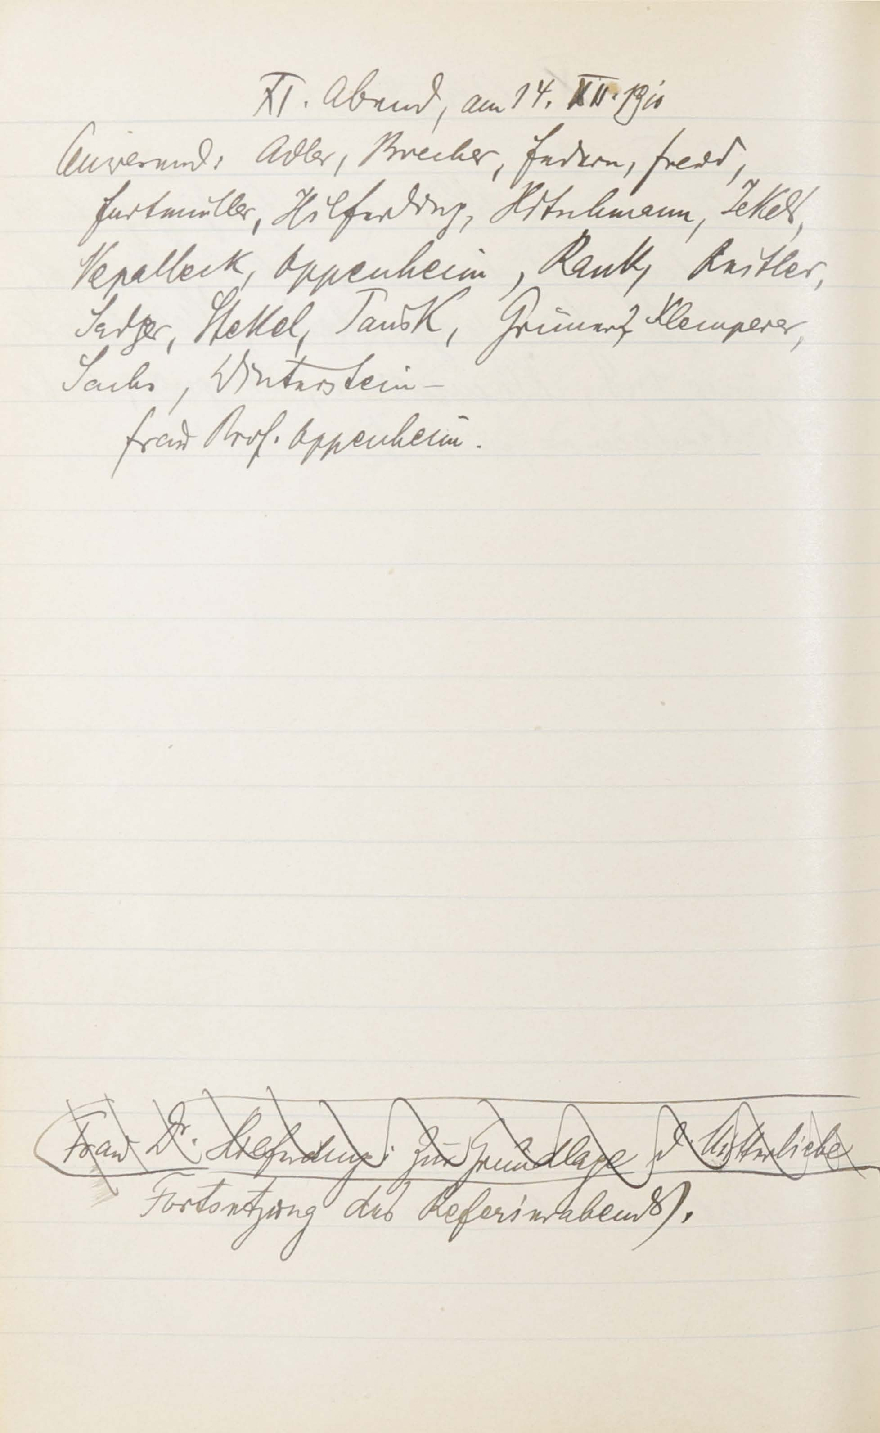 XI. Abend, am 14. XII. 1910
Anwesend: Adler, Brecher, Federn, Freud,
Furtmüller, Hilferding, Hitschmann, Jekels,
Nepalleck, Oppenheim, Rank, Reitler,
Sadger, Stekel, Tausk, Grüner, Klemperer,
Sachs, Winterstein –
Frau Prof. Oppenheim.
Frau Dr. Hilferding: Zur Grundlage d. Mutterliebe
Fortsetzung des Referierabends).